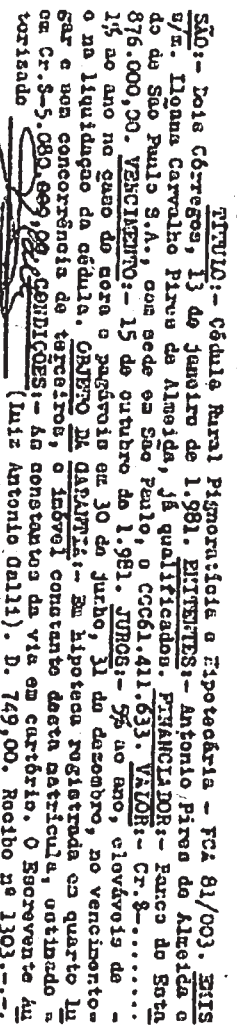 TÍTULO:- Cédula Rural Pignoratícia e Hipotecária - FCA 81/003. EMIS
SÃO:- Dois Córregos, 13 de janeiro de 1.981. EMITENTES:- Antonio Pires de Almeida e
s/m. Ilgana Carvalho Pires de Almeida, já qualificados. FINANCIADOR:- Banco do Esta
do de São Paulo S.A., com sede em São Paulo, o CGC61.411.633. VALOR:- Cr.$-........
876.000,00. VENCIMENTO:- 15 de outubro de 1.981. JUROS:- 5% ao ano, eleváveis de -
1% ao ano no caso de mora e pagáveis em 30 de junho, 31 de dezembro, no vencimento=
e na liquidação da cédula. OBJETO DA GARANTIA:- Em hipoteca registrada em quarto lu
gar e sem concorrência de terceiros, o imóvel constante desta matrícula, estimado =
em Cr.$-5.080.000,00 CONDIÇÕES:- As constantes da via em cartório. O Escrevente Au
torizado (Luiz Antonio Galli). D. 749,00. Recibo nº 1303.-.-.